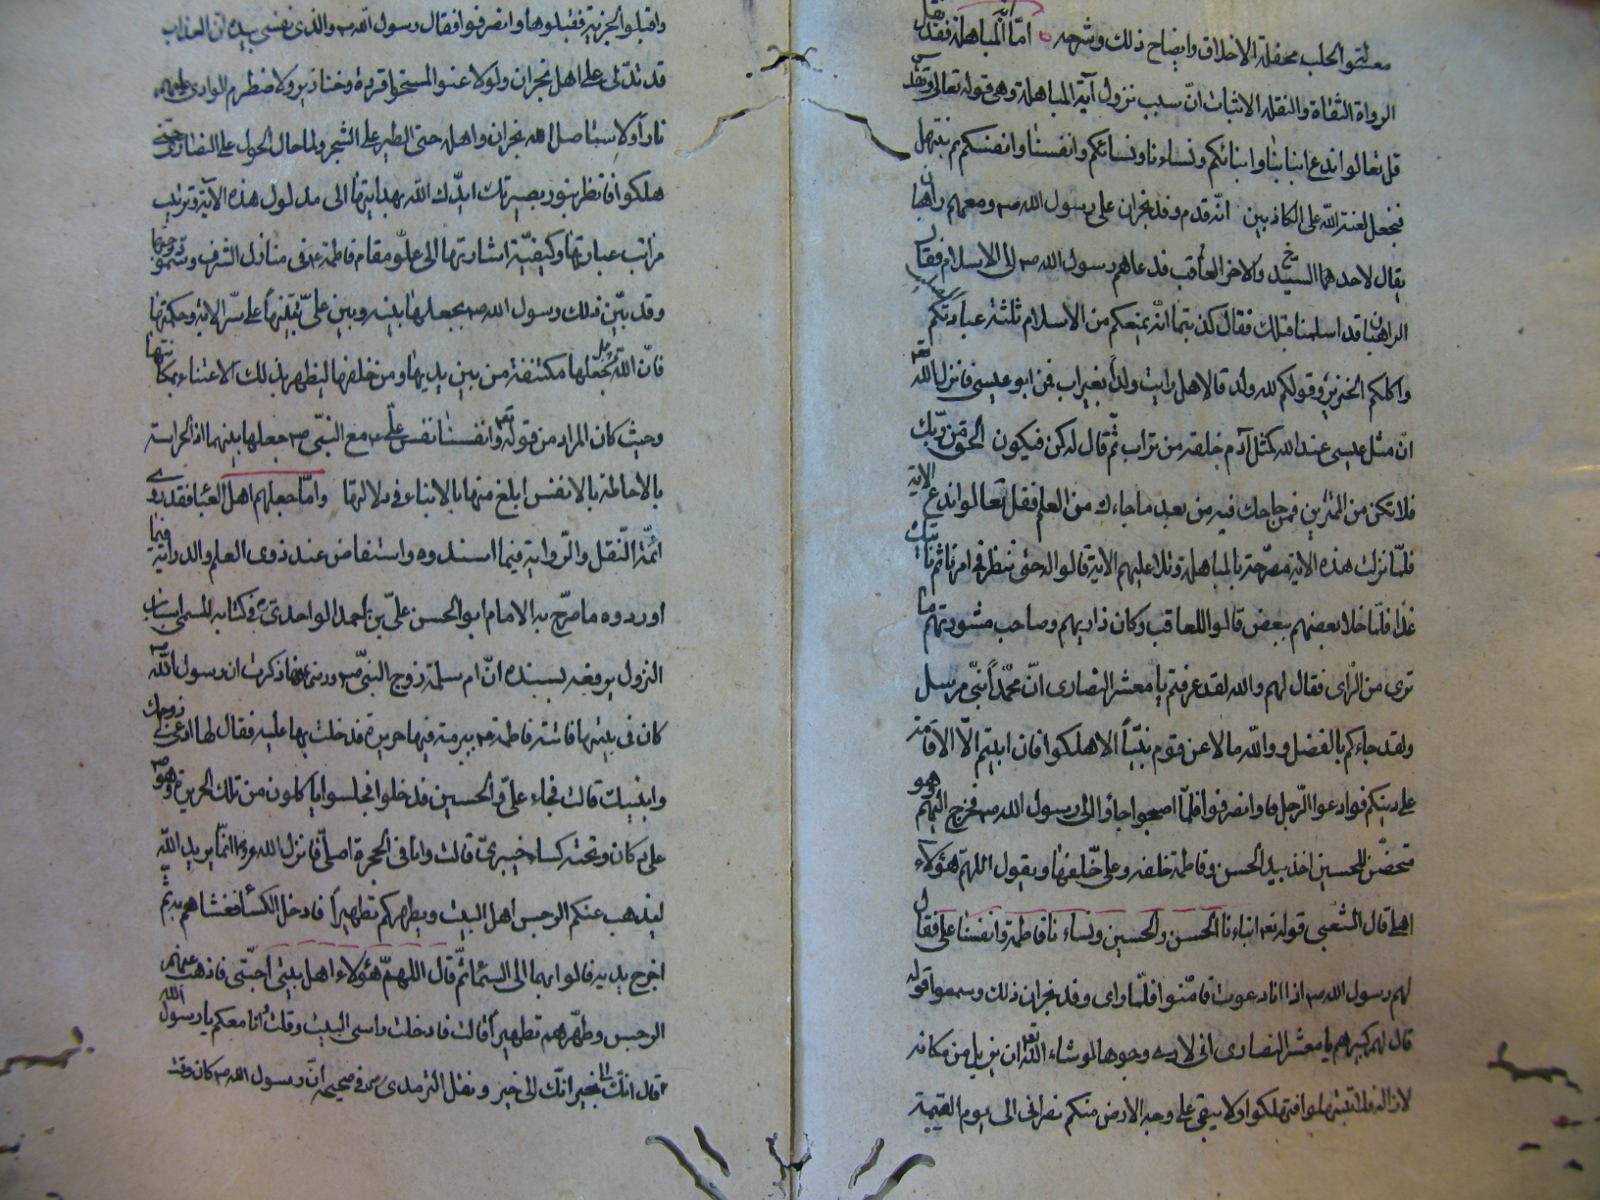 معشر الحلب محفلة الاخلاق وايضاح ذلك وشرحه اما آية المباهلة فقد نقل
الرواة الثقاة والنقلة الاثبات انّ سبب نزول آية المباهلة وهي قوله تعالى
قل تعالوا ندع ابنائنا وابنائكم ونساءنا ونسائكم وانفسنا وانفسكم ثم نبتهل
فنجعل لعنة الله على الكاذبين انّه قدم وفد نجران على رسول الله ص ومعهم راهبان
يقال لاحدهما السيّد والاخر العاقب فدعاهم رسول الله ص الى الاسلام فقال
الراهبان قد اسلمنا قبلك فقال كذبتما انّه يمنعكم من الاسلام ثلثة عبادتكم
واكلكم الخنزير وقولكم لله ولد قالا هل رايت ولداً بغير اب فمن ابو عيسى فانزل الله تع
انّ مثل عيسى عند الله كمثل آدم خلقه من تراب ثم قال له كن فيكون الحق من ربّك
فلا تكن من الممترين فمن حاجك فيه من بعد ما جاءك من العلم فقل تعالوا ندع الاية
فلمّا نزلت هذه الاية مصرّحة بالمباهلة وتلا عليهم الاية قالوا له حتى ننظر في امرنا ثم ناتيك
غدا فلمّا خلا بعضهم ببعض قالوا للعاقب وكان ذا رايهم وصاحب مشورتهم ما
ترى من الرّاى فقال لهم والله لقد عرفتم يا معشر النصارى انّ محمّداً نبىّ مرسل
ولقد جاءكم بالفضل و والله ما لاعن قوم نبيّاً الا هلكوا فان ابيتم الّا الاقامة
على دينكم فوادعوا الرّجل وانصرفوا فلمّا اصبحوا جاؤا الى رسول الله ص فخرج اليهم وهو
محتضن للحسين اخذ بيد الحسن وفاطمة خلفه وعلىّ خلفها ويقول اللهمّ هؤلاء
اهلى قال الشّعبى قوله تع ابناءنا الحسن والحسين ونساءنا فاطمة وانفسنا على فقال
لهم رسول الله ص اذا انا دعوت فامّنوا فلمّا راى وفد نجران ذلك وسمعوا قوله
قال لهم كبيرهم يا معشر النصارى انى لارى وجوها لو شاء الله تع ان يزيل من مكانه
لازاله فلا تبتهلوا فتهلكوا ولا يبقى على وجه الارض منكم نصرانى الى يوم القيمة
واقبلوا الجزية فقبلوها وانصرفوا فقال رسول الله ص والذى نفسى بيده انّ العذاب
قد تدلّى على اهل نجران ولو لاعنوا لمسخوا قردة وخنازير ولاضطرم الوادى عليهم
نارا ولاستاصل الله نجران واهله حتى الطير على الشجر ولما حال الحول على النصارى حتى
هلكوا فانظر بنور بصيرتك ايّدك الله بهدايتها الى مدلول هذه الاية وترتيب
مراتب عباراتها وكيفيّة اشارتها الى علوّ مقام فاطمة ع فى منازل الشرف
وقد بيّن ذلك رسول الله ص بجعلها بينه وبين علىّ تنبيهاً على سرّ الاية وحكمتها
فانّ الله جعلها مكتنفة من بين يديها ومن خلفها ليظهر بذلك الاعتناء بمكانتها
وحيث كان المراد من قوله تع وانفسنا نفس علىّ ع مع النبىّ ص جعلها بينهما اذ الحراسة
بالاحاطة بالانفس ابلغ منها بالابناء فى دلالتها وامّا جعلهم اهل العبا فقد روى
ائمّة النّقل والرّواية فيما اسندوه واستفاض عند ذوى العلم والدراية فيما
اوردوه ما صرّح به الامام ابو الحسن علىّ بن احمد الواحدى فى كتابه المسمى باسباب
النزول يرفعه بسنده انّ ام سلمة زوج النبىّ ص ورضى عنها ذكرت ان رسول الله ص
كان فى بيتها فاتته فاطمة ع ببرمة فيها حريرة فدخلت بها عليه فقال لها ادعى لى زوجك
وابنيك قالت فجاء علىّ والحسين فدخلوا فجلسوا ياكلون من تلك الحريرة وهو ص
على دكان وتحته كساء خيبرىّ قالت وانا فى الحجرة اصلّى فانزل الله عز وجل انّما يريد الله
ليذهب عنكم الرجس اهل البيت ويطهركم تطهيراً فادخل الكساء فغشاهم به ثم
اخرج يديه فالوا بهما الى السّماء ثم قال اللهمّ هؤلاء اهل بيتى احبّتى فاذهب عنهم
الرجس وطهّرهم تطهيراً قالت فادخلت راسى البيت وقلت وانا معكم يا رسول الله
قال انّك الى خير انّك الى خير ونقل الترمذى فى صحيحه انّ رسول الله ص كان وقت